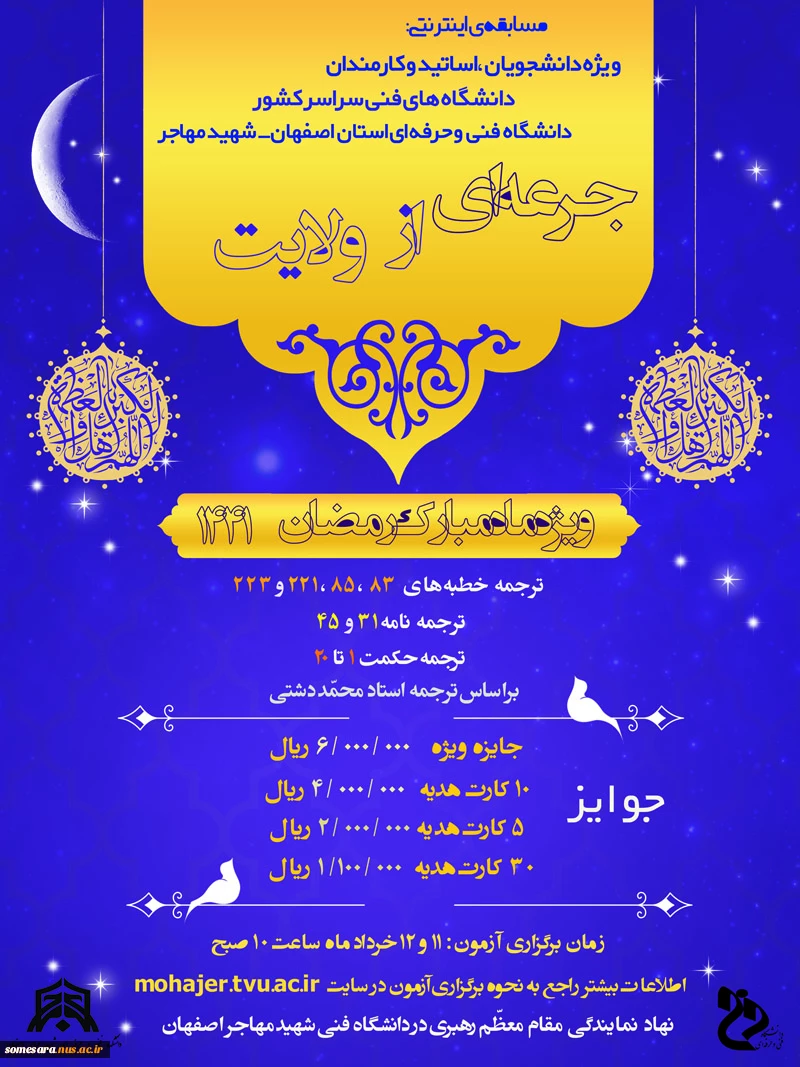 مسابقه‌ی اینترنتی:
ویژه دانشجویان ،اساتید و کارمندان
دانشگاه های فنی سراسر کشور
دانشگاه فنی و حرفه ای استان اصفهان_ شهید مهاجر
جرعه‌ای از ولایت
ویژه ماه مبارک رمضان ۱۴۴۱
ترجمه خطبه های ۸۳ ، ۸۵ ، ۲۲۱ و ۲۲۳
ترجمه نامه ۳۱ و ۴۵
ترجمه حکمت ۱ تا ۲۰
براساس ترجمه استاد محمّد دشتی
جوایز
جایزه ویژه ۶/۰۰۰/۰۰۰ ریال
۱۰ کارت هدیه ۴/۰۰۰/۰۰۰ ریال
۵ کارت هدیه ۲/۰۰۰/۰۰۰ ریال
۳۰ کارت هدیه ۱/۱۰۰/۰۰۰ ریال
زمان برگزاری آزمون : ۱۱ و ۱۲ خرداد ماه ساعت ۱۰ صبح
اطلاعات بیشتر راجع به نحوه برگزاری آزمون در سایت mohajer.tvu.ac.ir
نهاد نمایندگی مقام معظّم رهبری در دانشگاه فنی شهید مهاجر اصفهان
somesara.nus.ac.ir